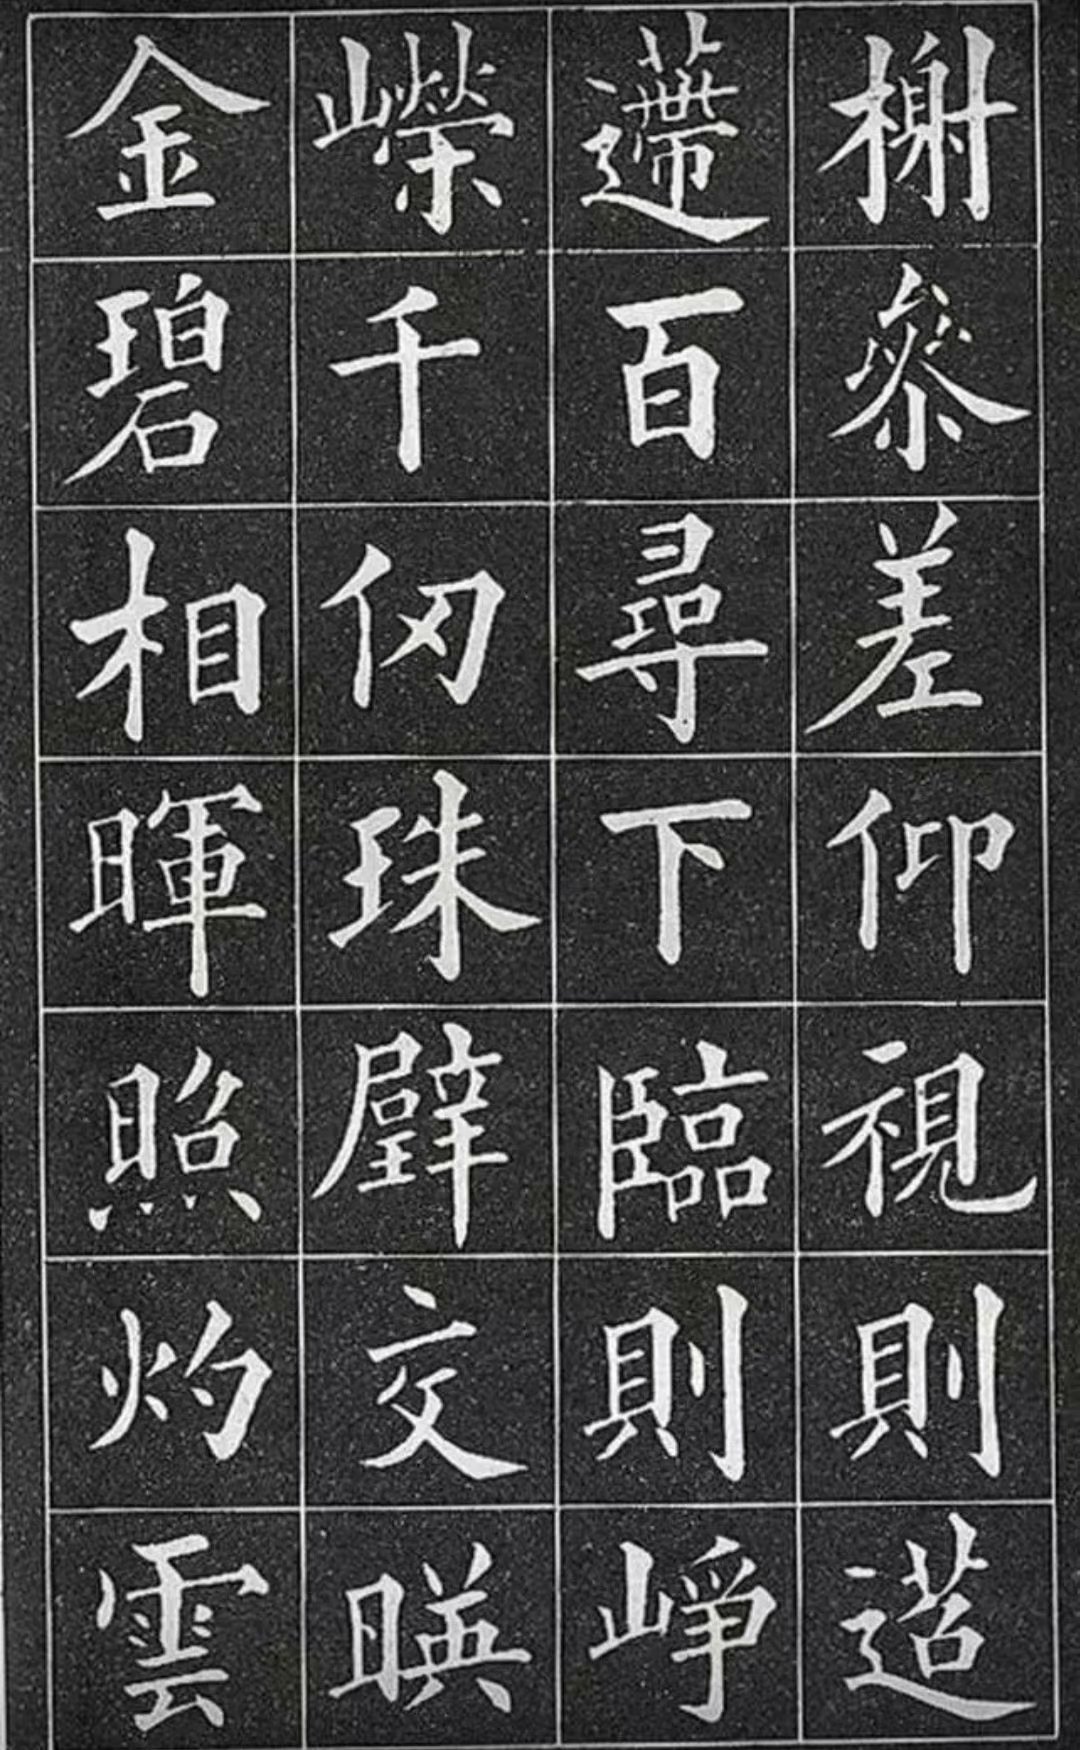 榭參差仰視則迢
遰百尋下臨則崢
嶸千仞珠璧交暎
金碧相暉照灼雲